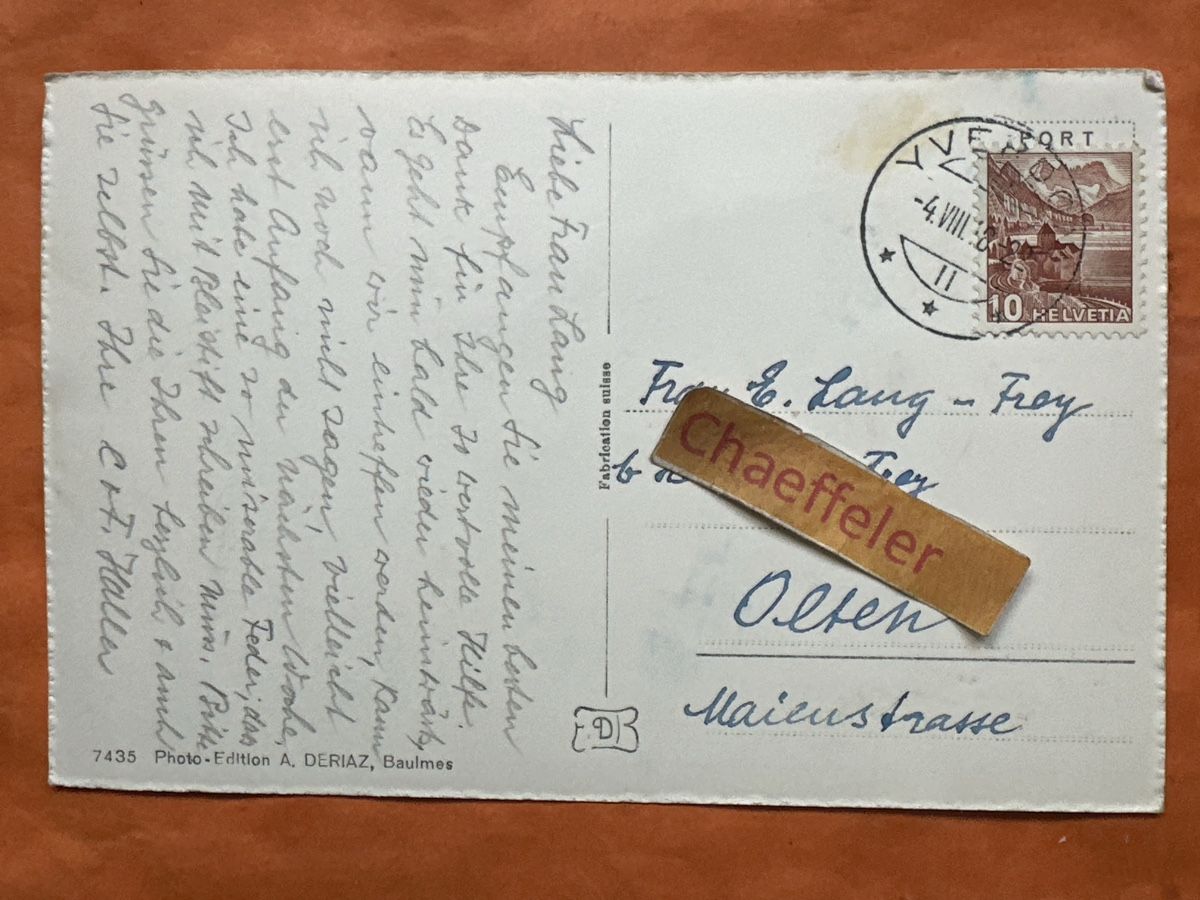 Liebe Frau Lang
Empfangen Sie meinen besten
Dank für Ihre so wertvolle Hilfe.
Es geht nun bald wieder heimwärts,
wann wir eintreffen werden, kann
ich noch nicht sagen, vielleicht
erst Anfang der nächsten Woche.
Ich habe eine so miserable Feder, dass
ich mit Bleistift schreiben muss. Bitte
grüssen Sie die Ihren herzlich & auch
Sie selbst. Ihre Haller
7435 Photo-Edition A. DERIAZ, Baulmes
Fabrication suisse
D
PORT
YVE
-4.VIII.
11
10 HELVETIA
Frau E. Lang - Frey
Frey
Chaeffeler
Olten
Maienstrasse